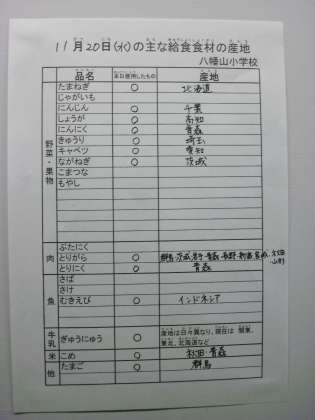 11月20日(水)の主な給食食材の産地
八幡山小学校
品名 本日使用したもの 産地
野菜・果物
たまねぎ ○ 北海道
じゃがいも
にんじん ○ 千葉
しょうが ○ 高知
にんにく ○ 青森
きゅうり ○ 埼玉
キャベツ ○ 愛知
ながねぎ ○ 茨城
こまつな
もやし
肉
ぶたにく
とりがら ○ 群馬・茨城・岩手・青森・長野・新潟・宮城・秋田・山形
とりにく ○ 青森
魚
さば
さけ
むきえび ○ インドネシア
牛乳 ぎゅうにゅう ○ 産地は日々異なり、現在は 関東、
東北、北海道など
米 こめ ○ 秋田・青森
他 たまご ○ 群馬